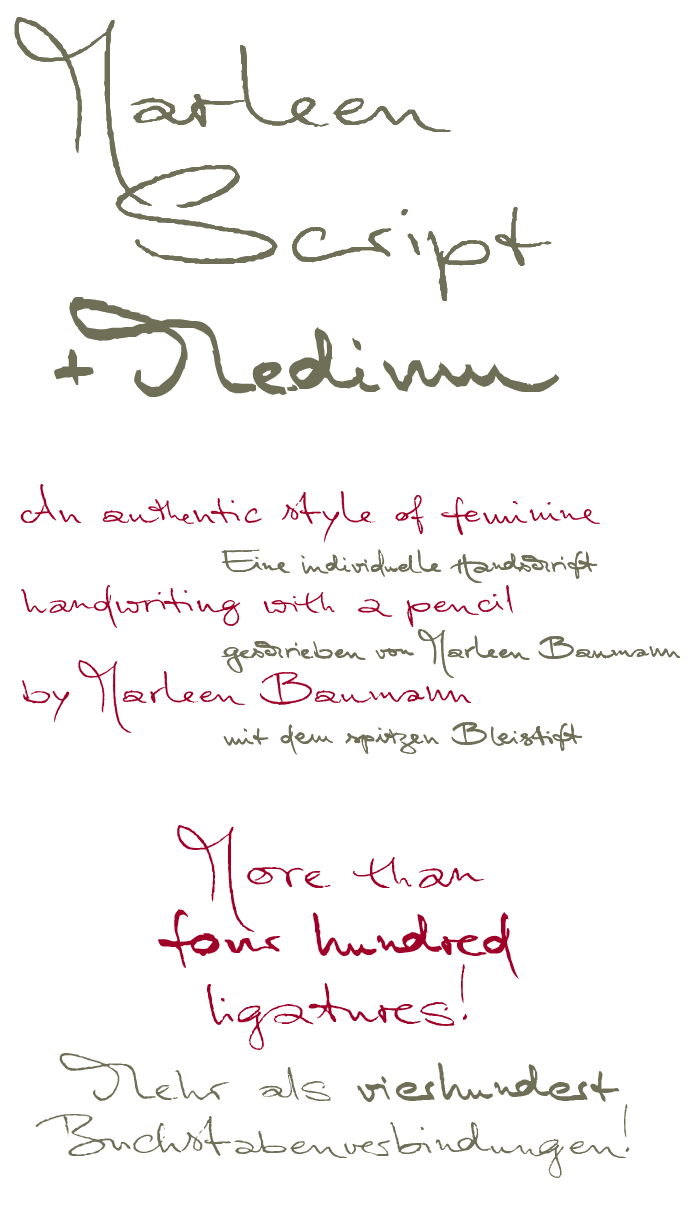 Marleen
Script
+ Medium
An authentic style of feminine
Eine individuelle Handschrift
handwriting with a pencil
geschrieben von Marleen Baumann
by Marleen Baumann
mit dem spitzen Bleistift
More than
four hundred
ligatures!
Mehr als vierhundert
Buchstabenverbindungen!